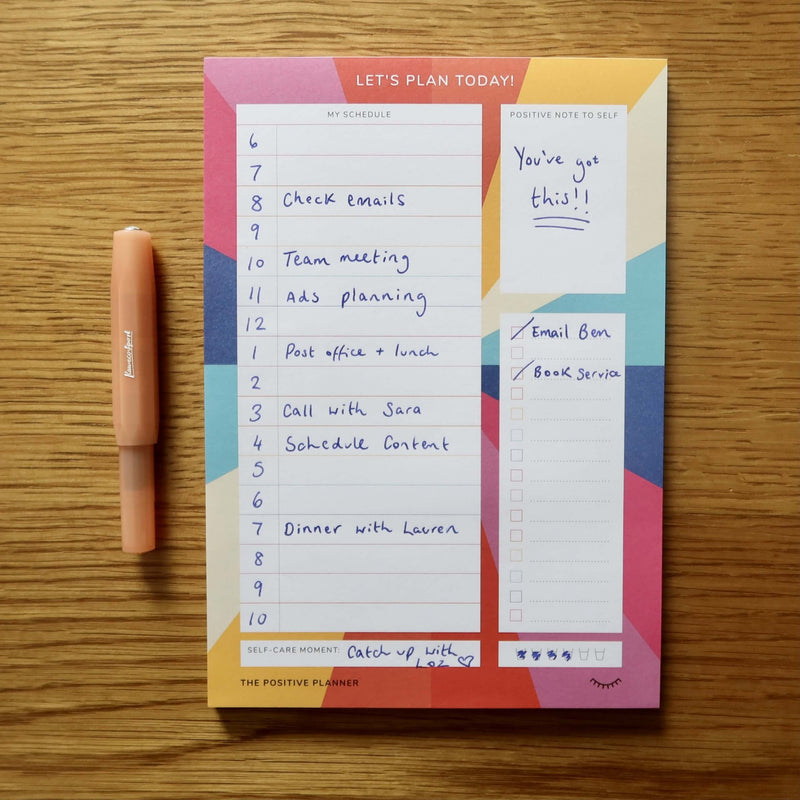 LET'S PLAN TODAY!
MY SCHEDULE
6
7
8 Check emails
9
10 Team meeting
11 Ads planning
12
1 Post office + lunch
2
3 Call with Sara
4 Schedule Content
5
6
7 Dinner with Lauren
8
9
10
SELF-CARE MOMENT: Catch up with
Loz
POSITIVE NOTE TO SELF
You've got
this!!
Email Ben
Book Service
THE POSITIVE PLANNER